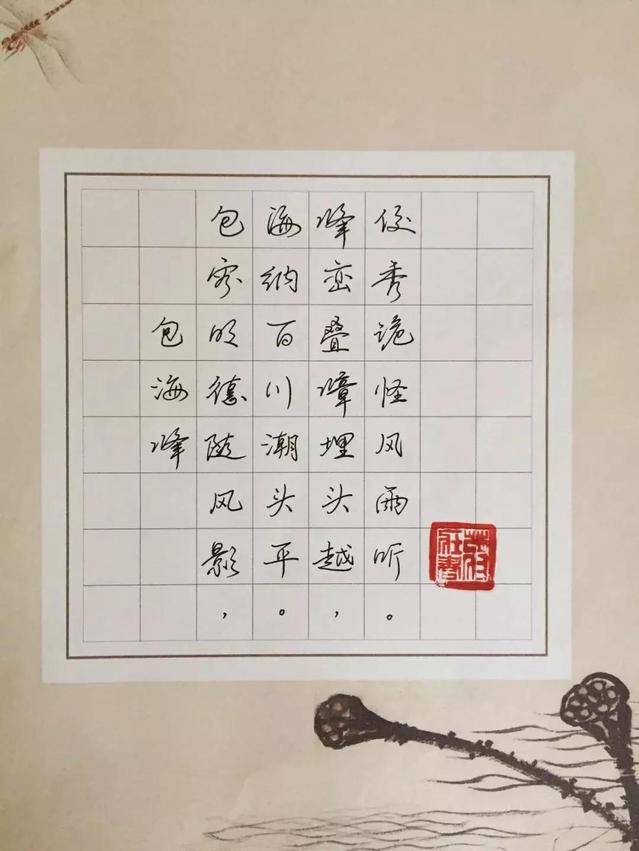 包海峰
包容明德随风影，
海纳百川潮头平。
峰峦叠嶂埋头越，
俊秀诡怪风雨听。